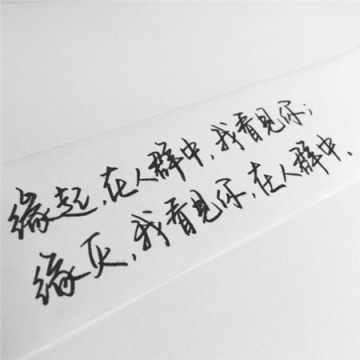 缘起，在人群中，我看见你；
缘灭，我看见你，在人群中。